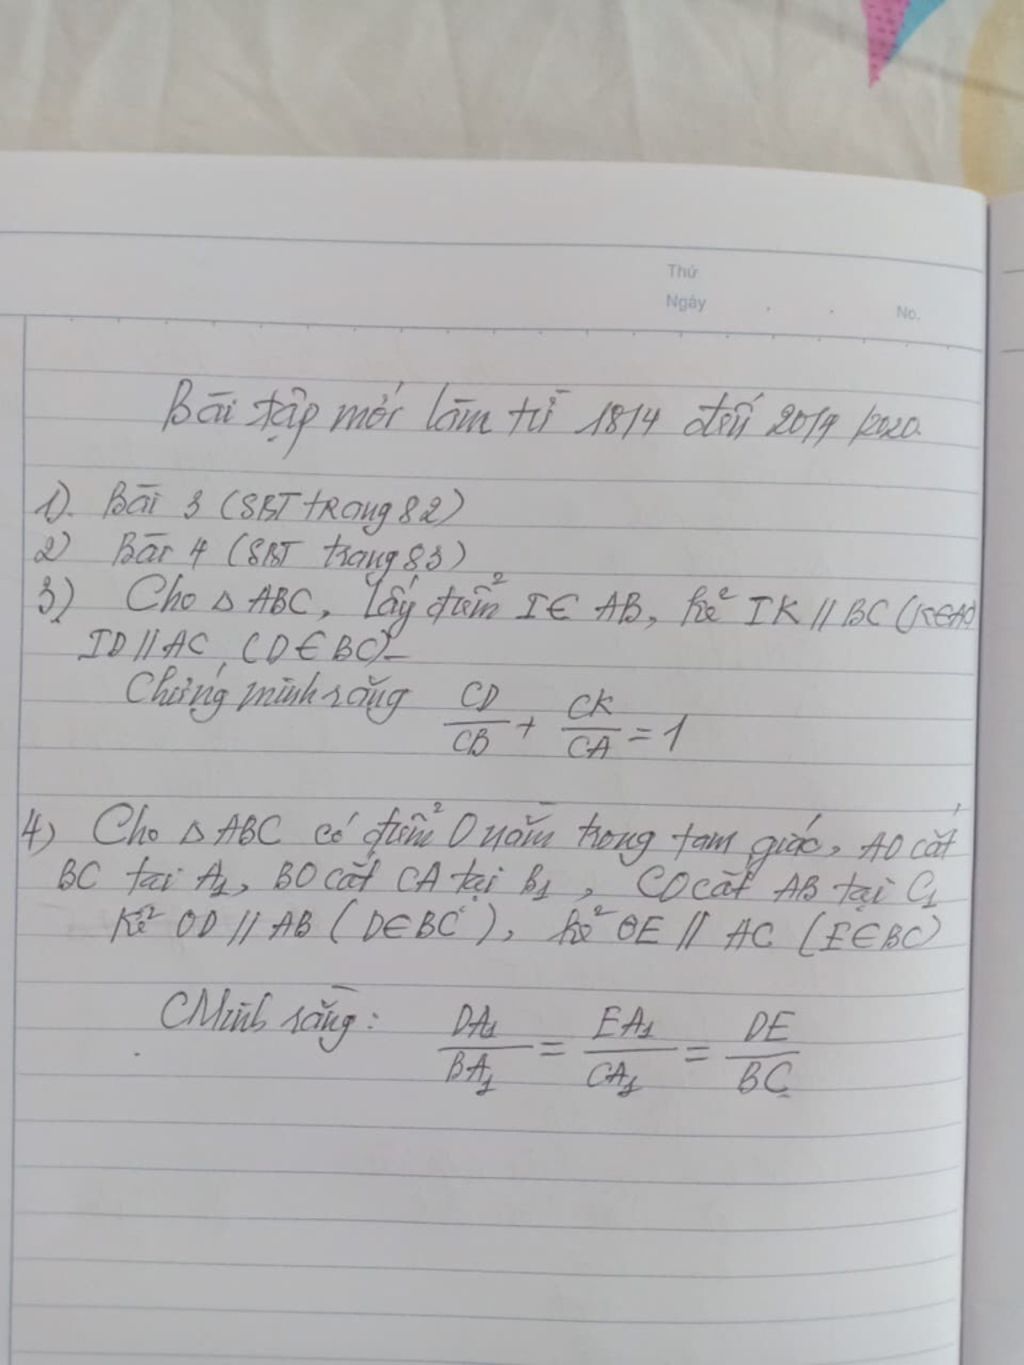 Thứ
Ngày . . No.
Bài tập mới làm từ 18/4 đến 20/4/2020.
1). Bài 3 (SBT trang 82)
2) Bài 4 (SBT trang 83)
3) Cho △ ABC, lấy điểm I ∈ AB, kẻ IK // BC (K∈AC)
ID // AC, (D ∈ BC)
Chứng minh rằng CD/CB + CK/CA = 1
4) Cho △ ABC có điểm O nằm trong tam giác, AO cắt
BC tại A₁, BO cắt CA tại B₁, CO cắt AB tại C₁
Kẻ OD // AB (D∈BC), kẻ OE // AC (E∈BC)
CMinh rằng: DA₁/BA₁ = EA₁/CA₁ = DE/BC